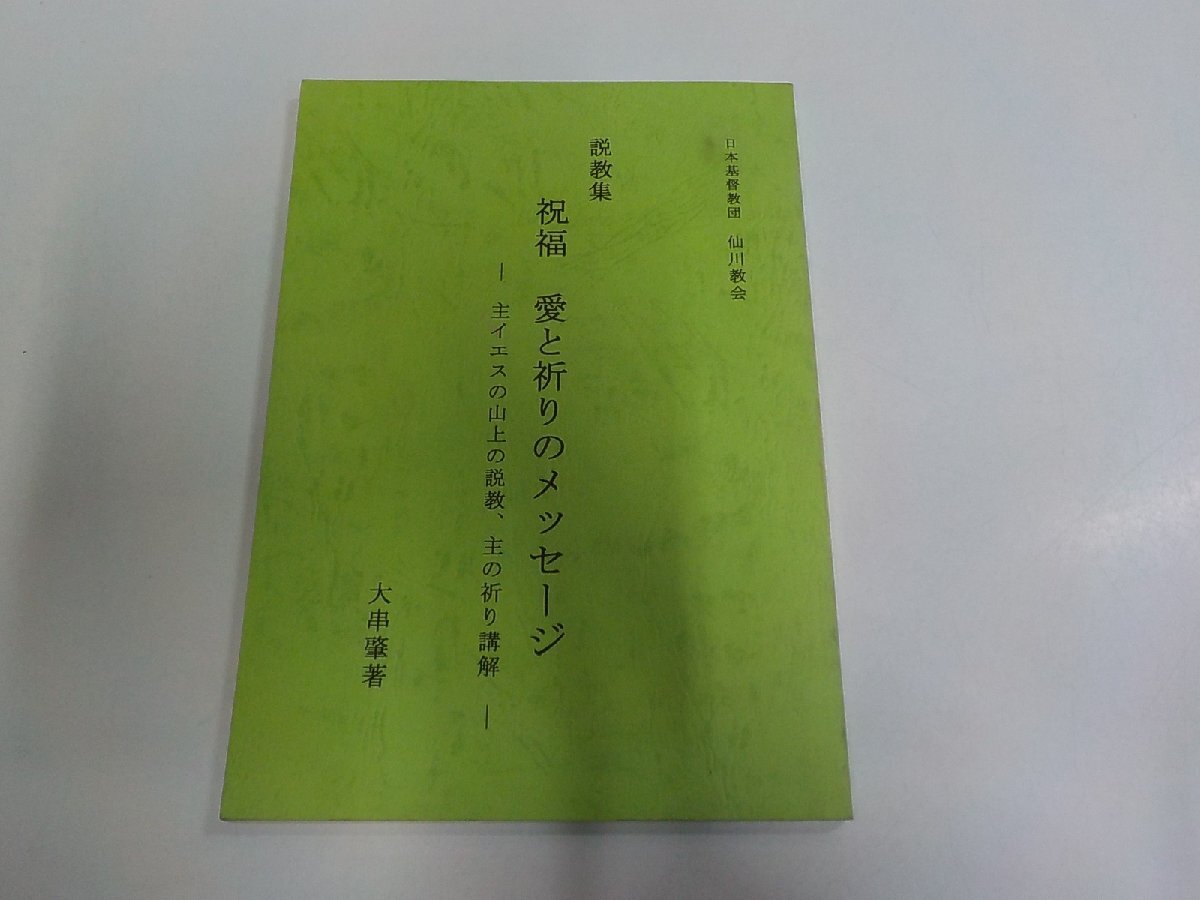 日本基督教団 仙川教会
説教集
祝福 愛と祈りのメッセージ
― 主イエスの山上の説教、主の祈り講解 ―
大串肇著